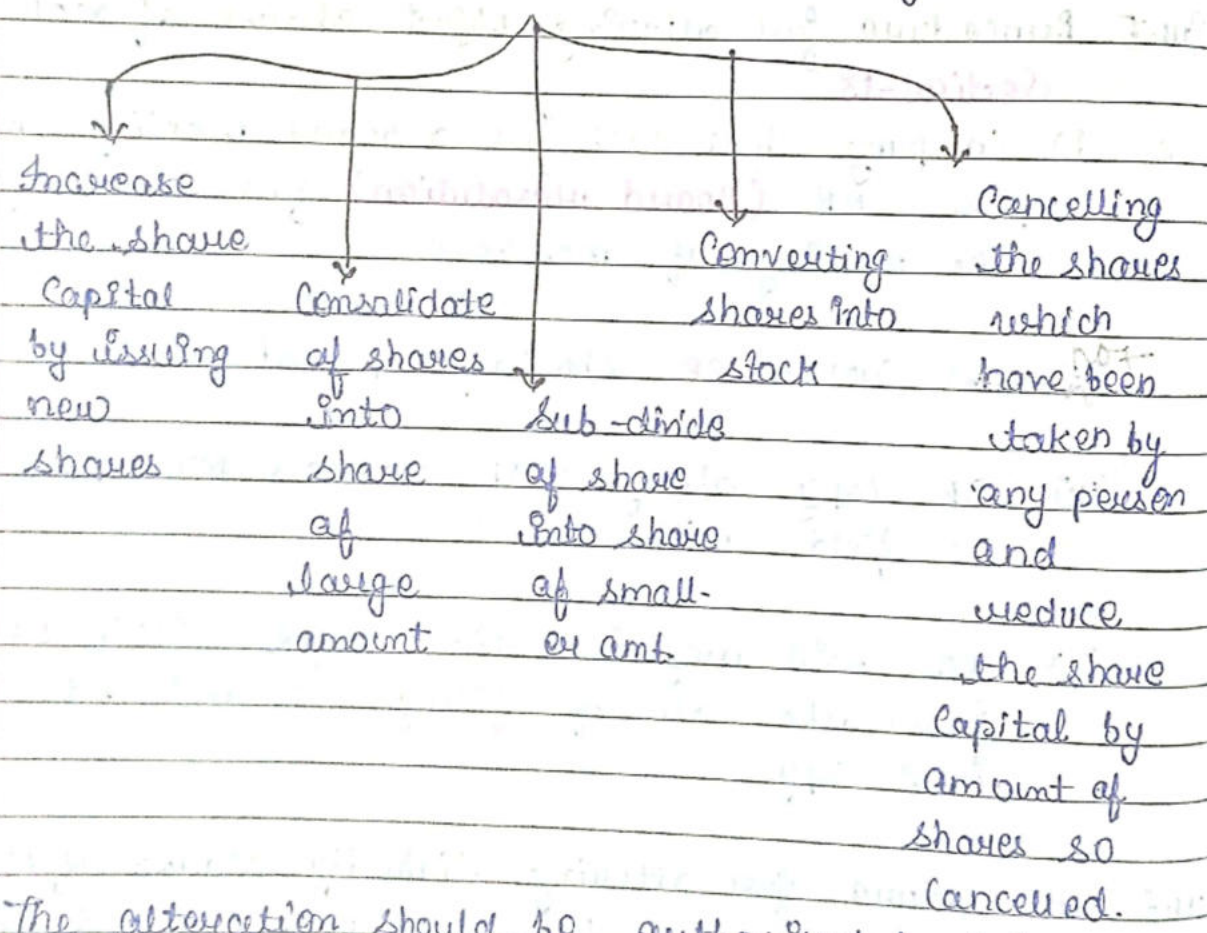 Increase
the share
Capital
by issuing
new
shares
Consolidate
of shares
into
share
of
large
amount
Sub-divide
of share
into share
of small-
er amt.
Converting
shares into
stock
Cancelling
the shares
which
have been
taken by
any person
and
reduce
the share
Capital by
amount of
shares so
Cancelled.
The alteration should be